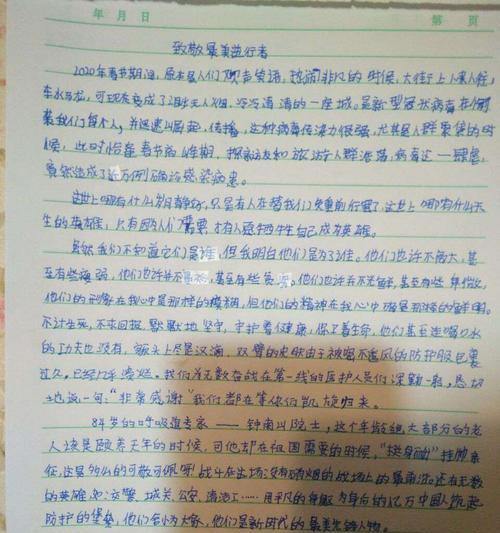 年 月 日 第 页
致敬最美逆行者
2020年春节期间,原本是人们欢声笑语,热闹非凡的时候,大街上人来人往,
车水马龙,可现在变成了空无人烟,冷冷清清的一座城。是新型冠状病毒在
袭我们每个人,并迅速崛起,传播,这种病毒传染力很强,尤其是人群聚集的时
候,此时恰逢春节高峰期,探亲访友和旅游人群混落,病毒还一肆虐,
竟然造成了近万例确诊感染病患。
这世上哪有什么岁月静好,只是有人在替我们负重前行罢了,这世上哪有什么天
生的英雄,只有因人们需要才有人愿牺牲自己成为英雄。
虽然我们不知道它们是谁,但我明白他们是为了谁。他们也许不高大,甚
至有些瘦弱,他们也许并不,甚至有些。他们也许并不光鲜,甚至有些
他们的形象在我心中是那样的模糊,但他们的精神在我心中确是那样的鲜明。
不计生死,不求回报,默默地坚守,守护着健康,保卫着生命,他们甚至连喝口水
的功夫也没有,额头上尽是汗滴,双臂的皮肤由于被密不透风的防护服包裹
过久,已经几乎溃烂。我们首无数奋战在第一线的医护人员们深鞠一躬,恳切
地说一句:“非常感谢”我们都在等你们凯旋归来。
84岁的呼吸道专家——钟南山院士,这个年龄绝大部分的老
人该是颐养天年的时候,可他却在祖国需要的时候,“挺身而出”挂帅亲
征,这是多么的可敬可佩呀!战斗在当场没有硝烟的战场上的最前沿。还在无数
的英雄,如:交警,城关,公安,清洁工……用平凡的身躯为身边的亿万中国人筑起
防护的堡垒,他们舍小为大家,他们是新时代的最美先锋人物。